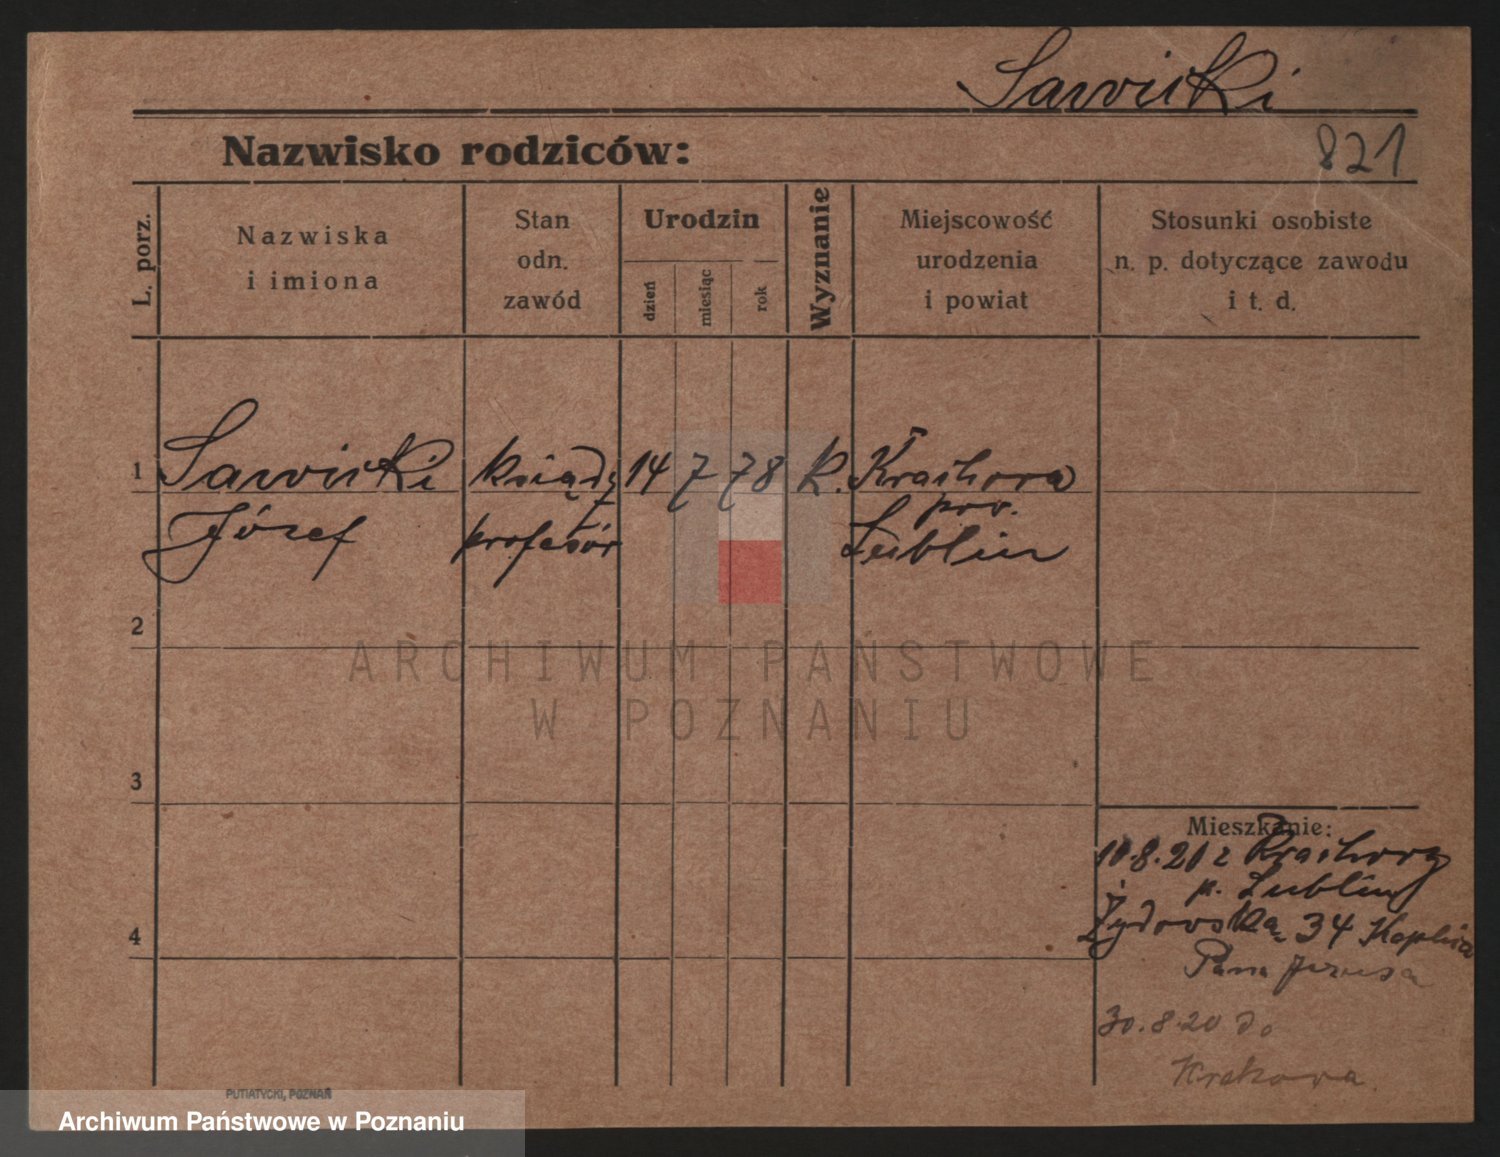 Sawicki
Nazwisko rodziców:
821
L. porz.
Nazwiska
i imiona
Stan
odn.
zawód
Urodzin
dzień
miesiąc
rok
Wyznanie
Miejscowość
urodzenia
i powiat
Stosunki osobiste
n. p. dotyczące zawodu
i t. d.
1 Sawicki ksiądz 14 7 78 k.
Józef profesór
pow.
Lublin
2
ARCHIWUM PAŃSTWOWE
W POZNANIU
3
Mieszkanie:
.8.20 z
p. Lublin
4
Żydowska 34 Kaplica
Pana Jezusa
30.8.20 do
Krakowa.
PUTIATYCKI, POZNAŃ
Archiwum Państwowe w Poznaniu